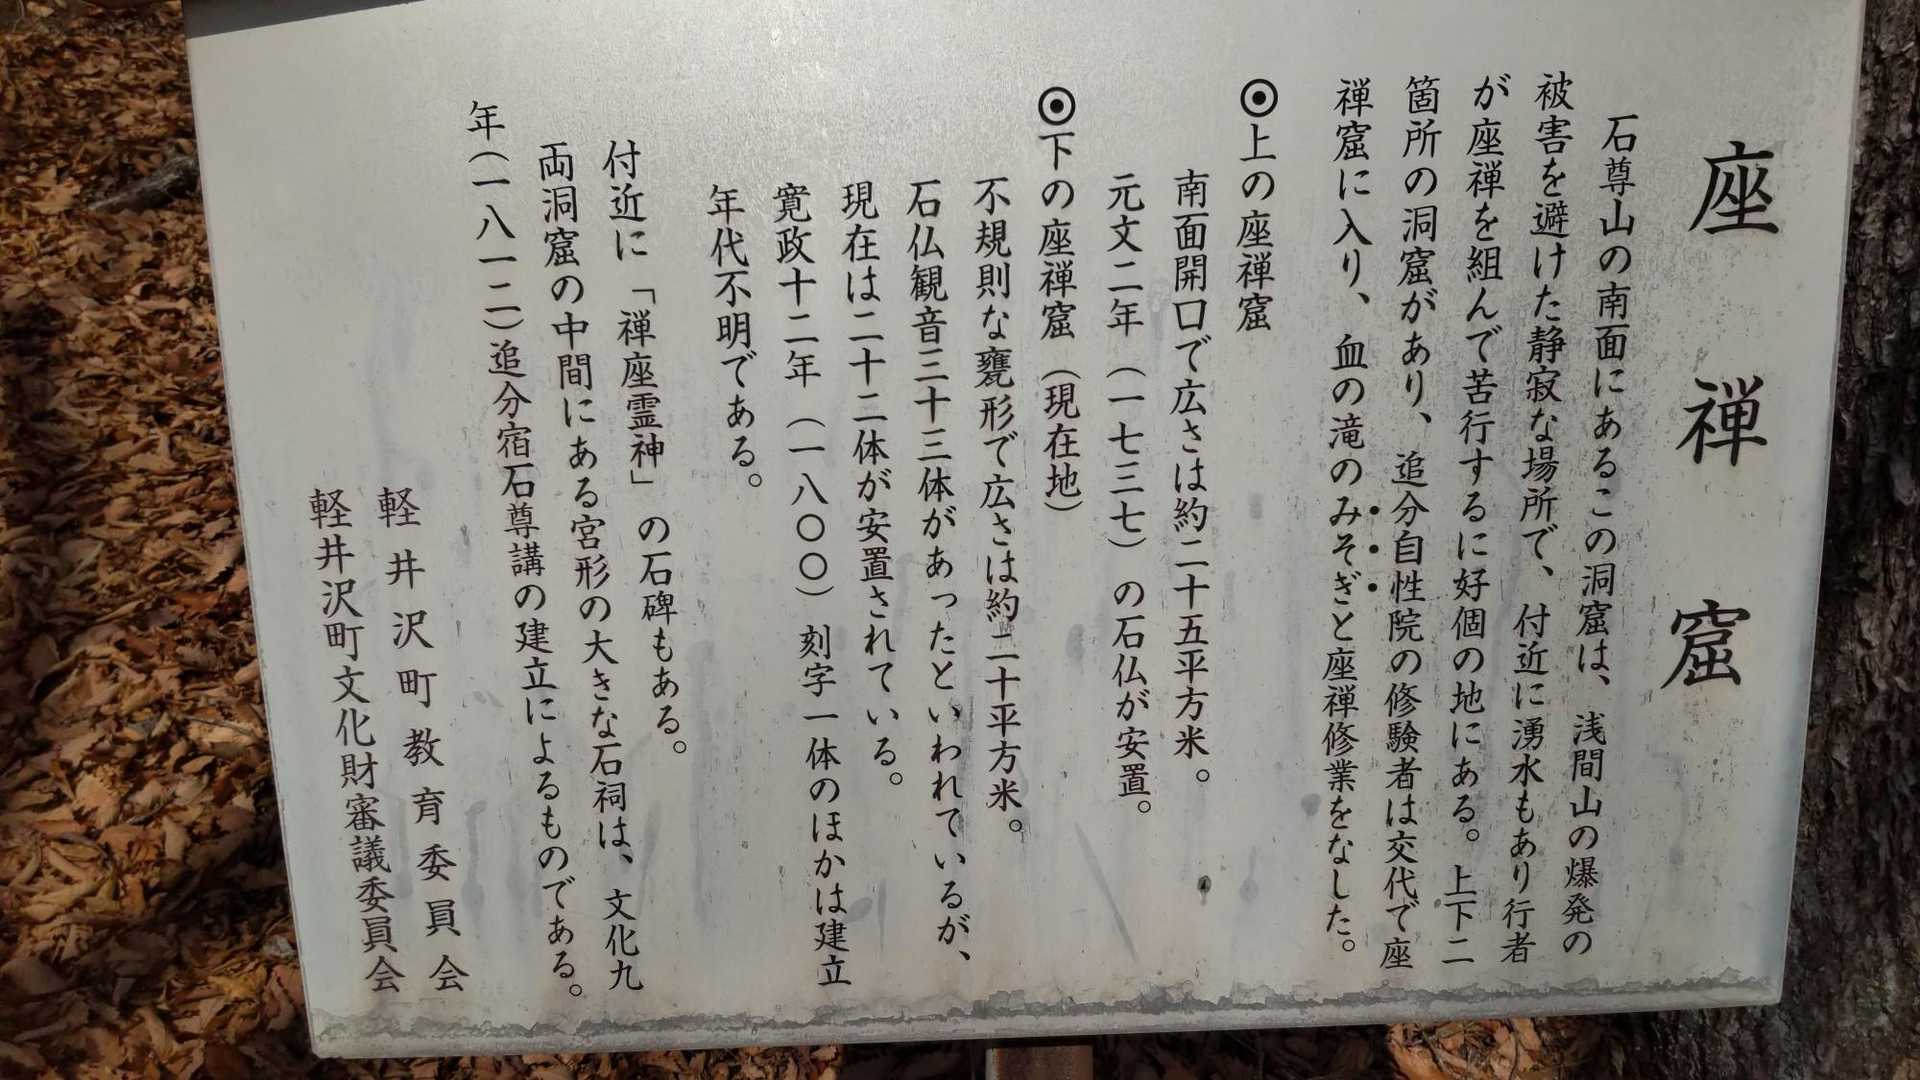 座禅窟
石尊山の南面にあるこの洞窟は、浅間山の爆発の
被害を避けた静寂な場所で、付近に湧水もあり行者
が座禅を組んで苦行するに好個の地にある。上下二
箇所の洞窟があり、追分自性院の修験者は交代で座
禅窟に入り、血の滝のみそぎと座禅修業をなした。
◉上の座禅窟
南面開口で広さは約二十五平方米。
元文二年（一七三七）の石仏が安置。
◉下の座禅窟（現在地）
不規則な甕形で広さは約二十平方米。
石仏観音三十三体があったといわれているが、
現在は二十二体が安置されている。
寛政十二年（一八〇〇）刻字一体のほかは建立
年代不明である。
付近に「禅座霊神」の石碑もある。
両洞窟の中間にある宮形の大きな石祠は、文化九
年（一八一二）追分宿石尊講の建立によるものである。
軽井沢町教育委員会
軽井沢町文化財審議委員会